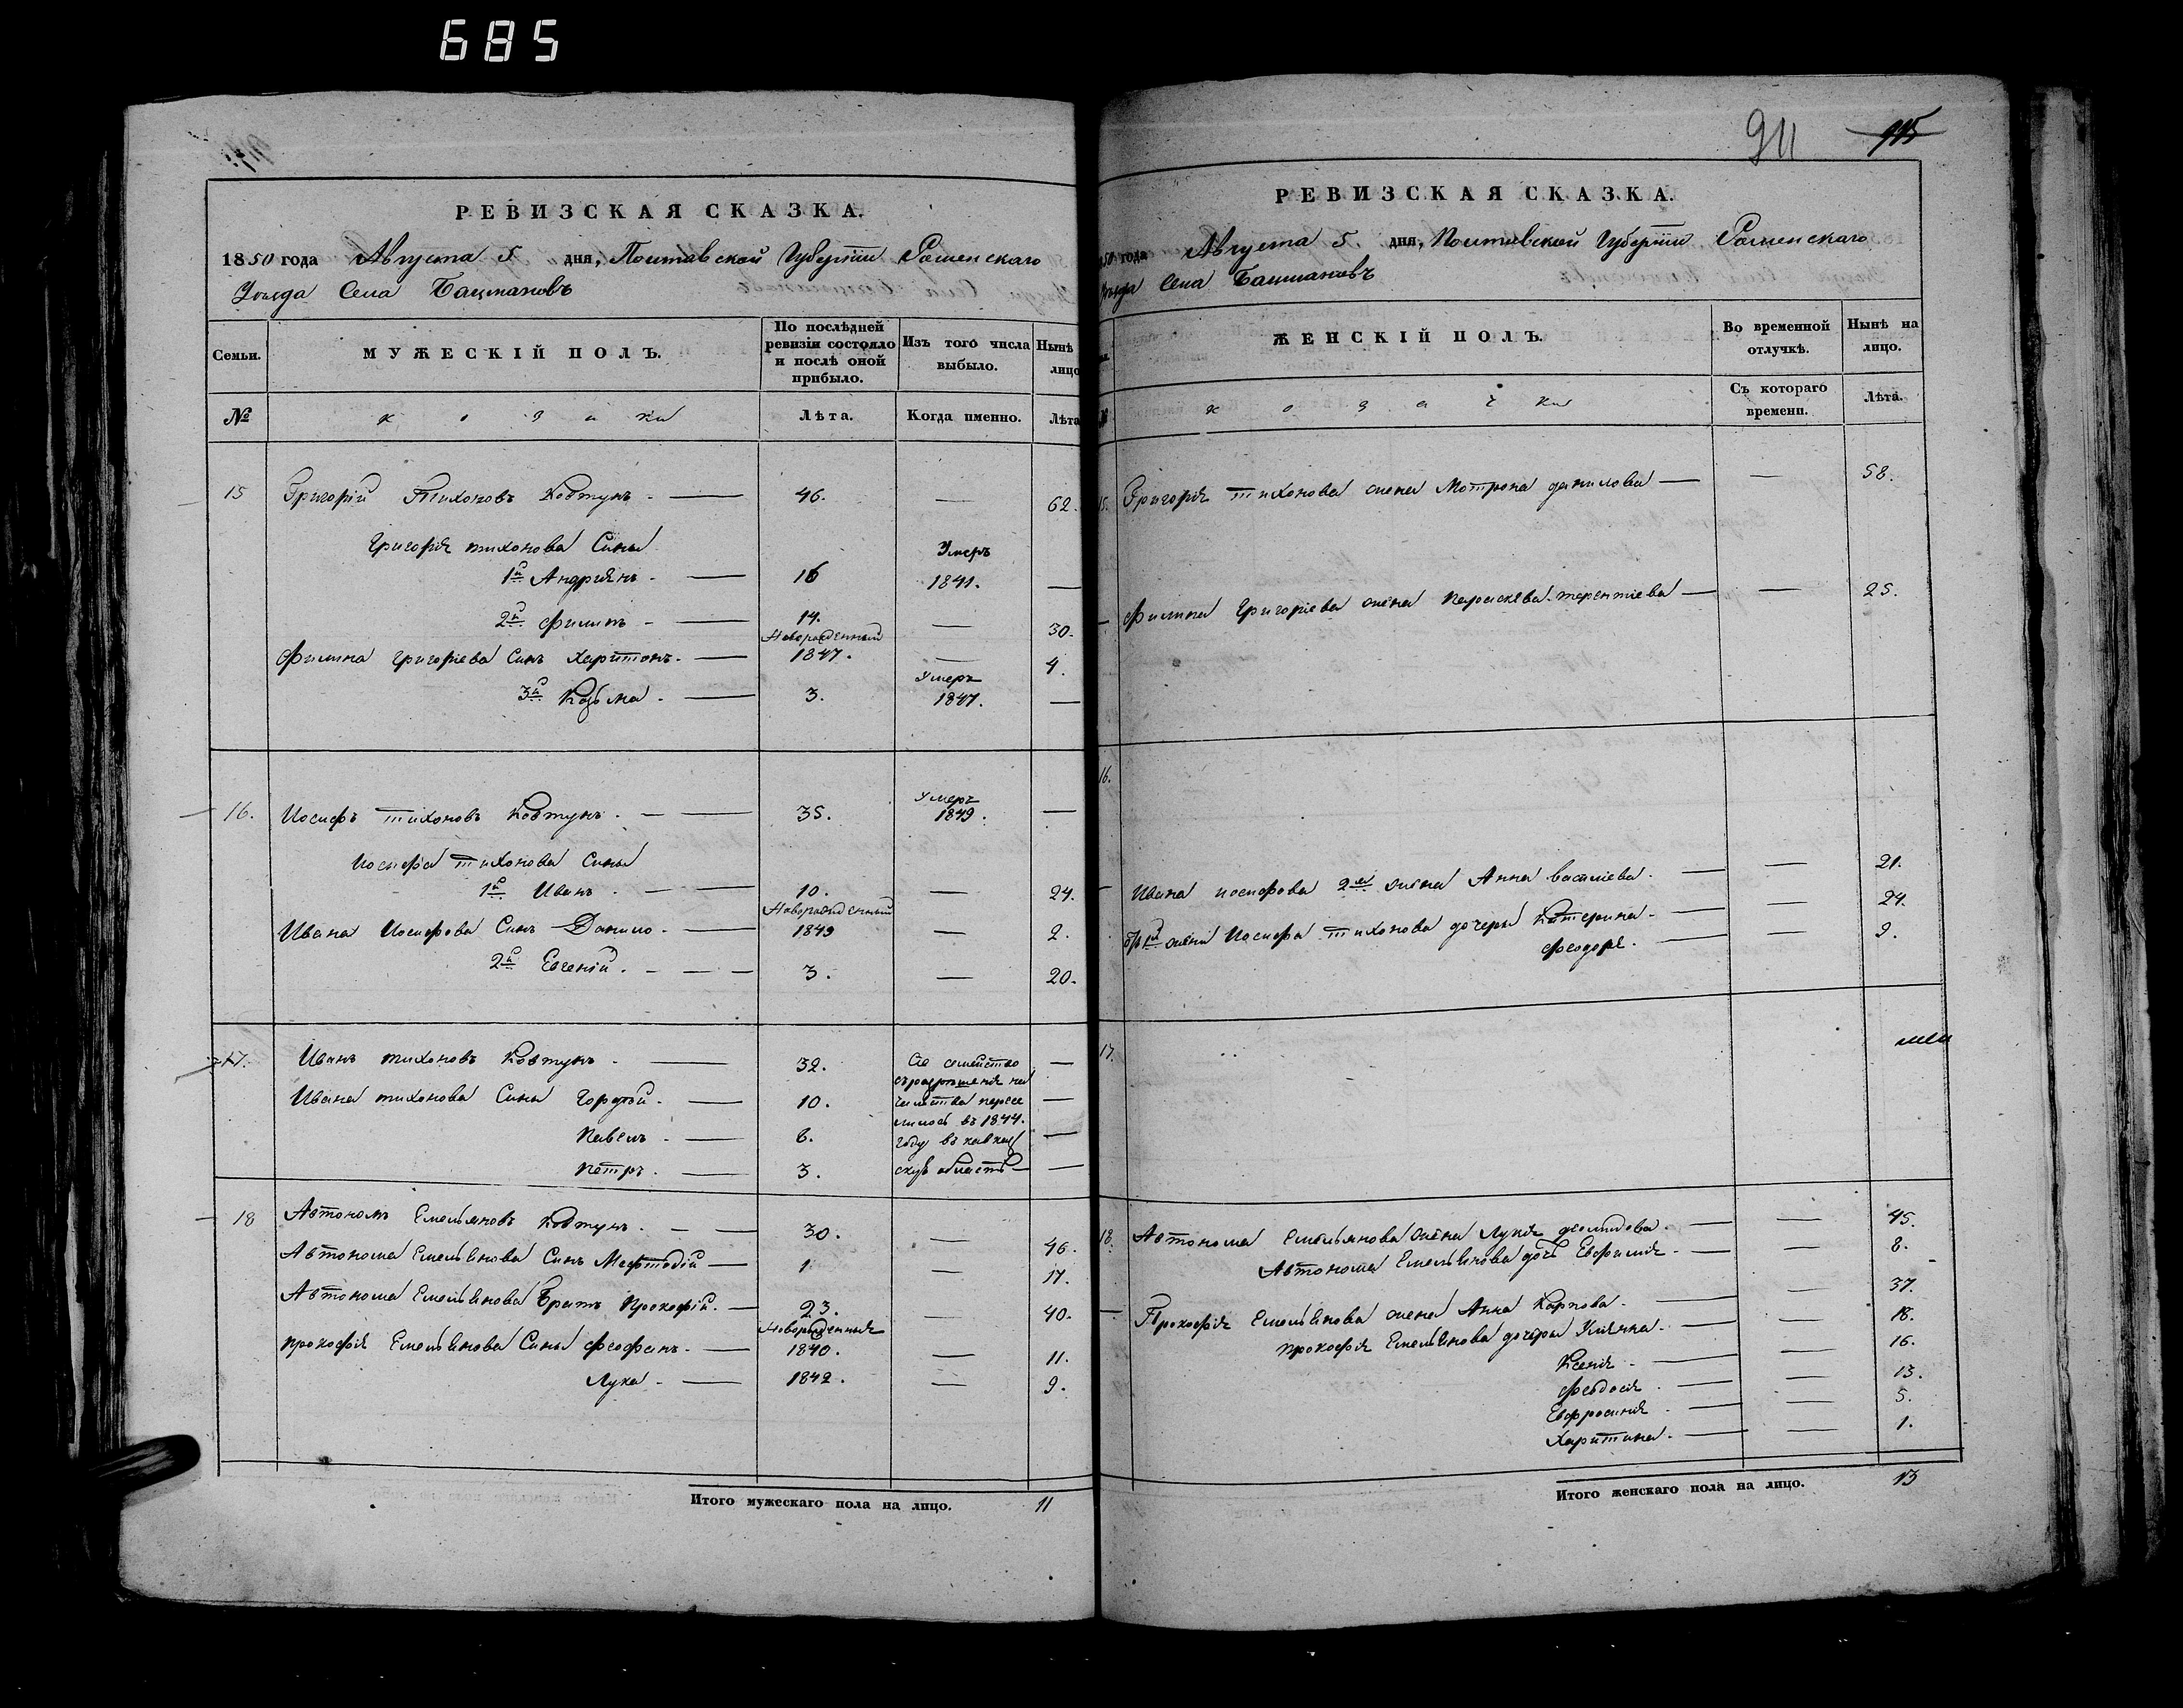 685
РЕВИЗСКАЯ СКАЗКА.
1850 года Августа 5 дня, Полтавской Губерніи Роменскаго
Уѣзда Села Бацмановъ
Семьи.
МУЖЕСКІЙ ПОЛЪ.
По послѣдней ревизіи состояло и послѣ оной прибыло.
Изъ того числа выбыло.
Нынѣ лицо
№ козаки Лѣта. Когда именно. Лѣта
15 Григорій Тихоновъ Ковтунъ. — 46. — 62.
Григорія тихонова Сины
1й Андріянъ. — 16 Умеръ 1841. —
2й Филипъ — 14. — 30.
Филипа Григоріева Синъ Харитонъ. — Новорожденный 1847. — 4.
3й Козьма. — 3. Умеръ 1847. —
16. Иосифъ тихоновъ Ковтунъ. — 35. Умеръ 1849. —
Иосифа тихонова Сины
1й Иванъ. — 10. — 24.
Ивана Иосифова Синъ Данило. — Новорожденный 1849 — 2.
2й Евгеній. — 3. — 20.
17. Иванъ тихоновъ Ковтунъ. — 32. Сіе семейство —
Ивана тихонова Сины Гордѣй. — 10. —
Павелъ. — 6. —
Петръ. — 3. —
съ разрѣшенія на
чальства пересе
лилось въ 1844.
году въ кавказ
скую область
18 Автономъ Емельяновъ Ковтунъ. — 30. — 46.
Автонома Емельянова Синъ Мефтодій — 1 — 17.
Автонома Емельянова Братъ Прокофій. — 23. — 40.
Прокофія Емельянова Сины Феофанъ. — Новорожденныя 1840. — 11.
Лука. — 1842. — 9.
Итого мужескаго пола на лицо. 11
911 915
РЕВИЗСКАЯ СКАЗКА.
50 года Августа 5. дня, Полтавской Губерніи Роменскаго
Уѣзда Села Бацмановъ
ЖЕНСКІЙ ПОЛЪ.
Во временной отлучкѣ.
Нынѣ на лицо.
№ козачки
Съ котораго времени.
Лѣта.
15. Григорія тихонова жена Мотрона данилова — — 58.
Филипа Григоріева жена Параскева терентіева — — 25.
16.
Ивана иосифова 2я жена Анна василіева. — — 21.
жени Иосифа тихонова дочеры Катерина. — — 24.
Феодора. — — 9.
17.
18. Автонома Емельянова жена Лукія деомидова. — — 45.
Автонома Емельянова дочь Евфимія. — — 8.
Прокофія Емельянова жена Анна Карпова. — — 37.
прокофія Емельянова дочеры Уліяна. — — 18.
Ксенія. — — 16.
Феодосія. — — 13.
Евфросинія. — — 5.
Харитина. — — 1.
Итого женскаго пола на лицо. 13